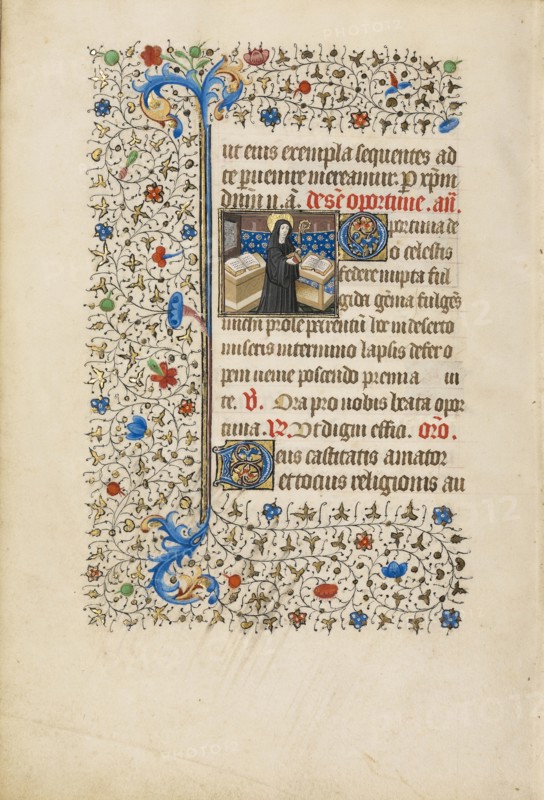 ut eius exempla sequentes ad
te peruenire mereamur. P xpm
dnm n. a. de sce oportune. an.
Oportuna de
o celestis
federe nupta ful
gida gema fulges
michi prole parentu lux in deserto
miseris in termino lapsis defer o
pem ueme poscendo premia in
te. V. Ora pro nobis beata opor
tuna. R. Ut digni effici. oro.
Deus castitatis amator
et tocius religionis au
PHOTO12